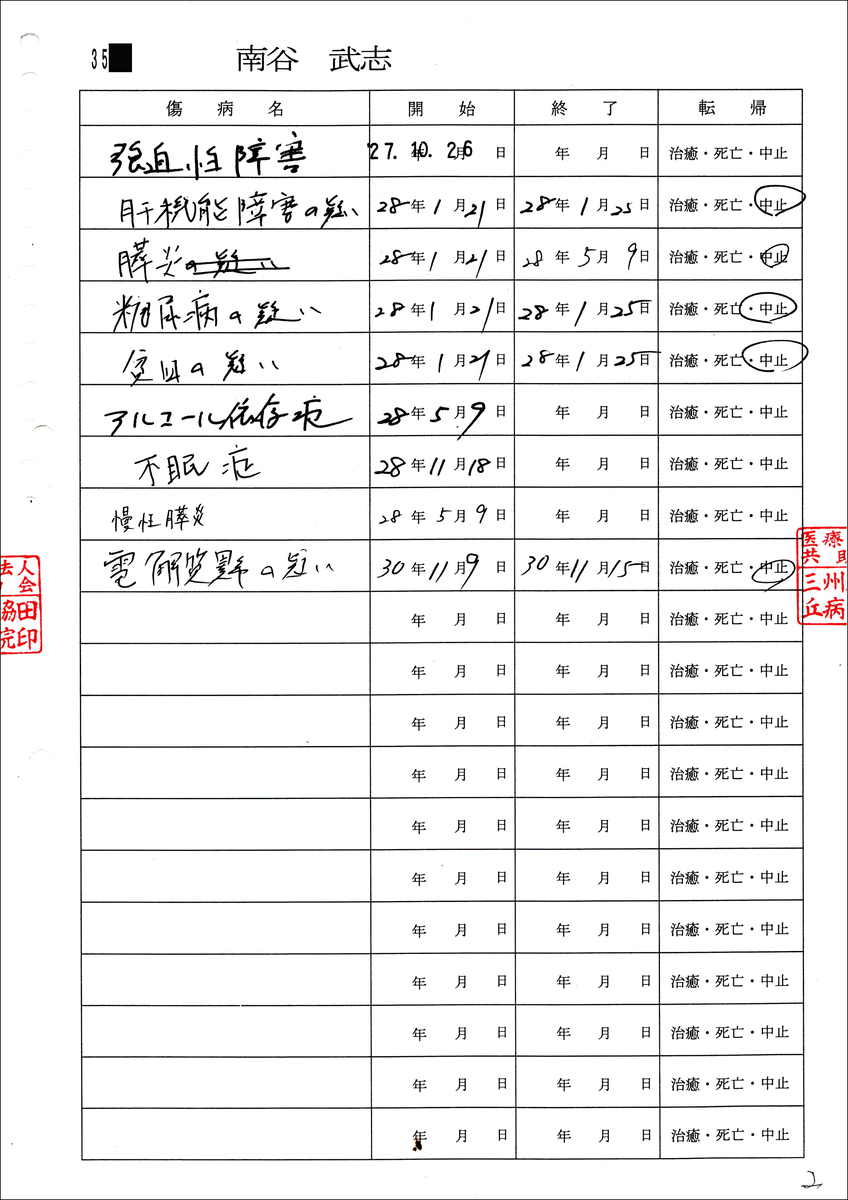 35
南谷 武志
傷病名 開始 終了 転帰
強迫性障害 '27.10.26 年 月 日 年 月 日 治癒・死亡・中止
肝機能障害の疑い 28年1月21日 28年1月25日 治癒・死亡・中止
膵炎の疑い 28年1月21日 28年5月9日 治癒・死亡・中止
糖尿病の疑い 28年1月21日 28年1月25日 治癒・死亡・中止
貧血の疑い 28年1月21日 28年1月25日 治癒・死亡・中止
アルコール依存症 28年5月9日 年 月 日 治癒・死亡・中止
不眠症 28年11月18日 年 月 日 治癒・死亡・中止
慢性膵炎 28年5月9日 年 月 日 治癒・死亡・中止
電解質異常の疑い 30年11月9日 30年11月15日 治癒・死亡・中止
年 月 日 年 月 日 治癒・死亡・中止
年 月 日 年 月 日 治癒・死亡・中止
年 月 日 年 月 日 治癒・死亡・中止
年 月 日 年 月 日 治癒・死亡・中止
年 月 日 年 月 日 治癒・死亡・中止
年 月 日 年 月 日 治癒・死亡・中止
年 月 日 年 月 日 治癒・死亡・中止
年 月 日 年 月 日 治癒・死亡・中止
年 月 日 年 月 日 治癒・死亡・中止
年 月 日 年 月 日 治癒・死亡・中止
年 月 日 年 月 日 治癒・死亡・中止
医療
共助
三州
丘病
法人
会
脇田
院印
2